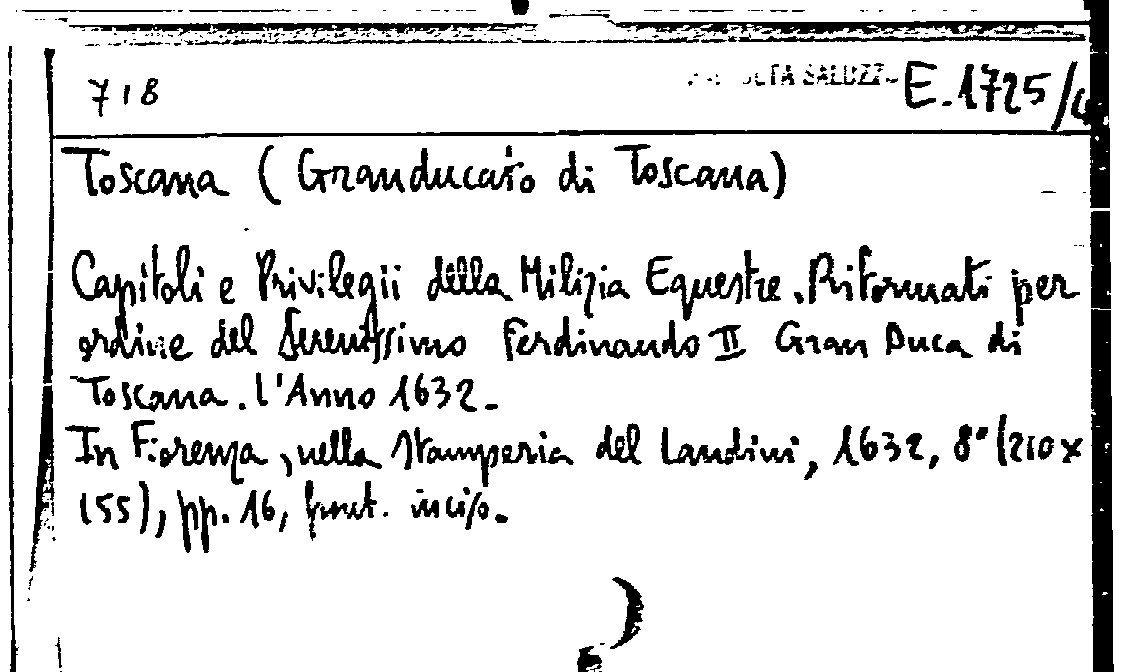 718 SALUZZO E.1725/
Toscana (Granducato di Toscana)
Capitoli e Privilegii della Milizia Equestre. Riformati per
ordine del Serenissimo Ferdinando II Gran Duca di
Toscana. l'Anno 1632.
In Fiorenza, nella Stamperia del Landini, 1632, 8° (210 x
155), pp. 16, front. inciso.